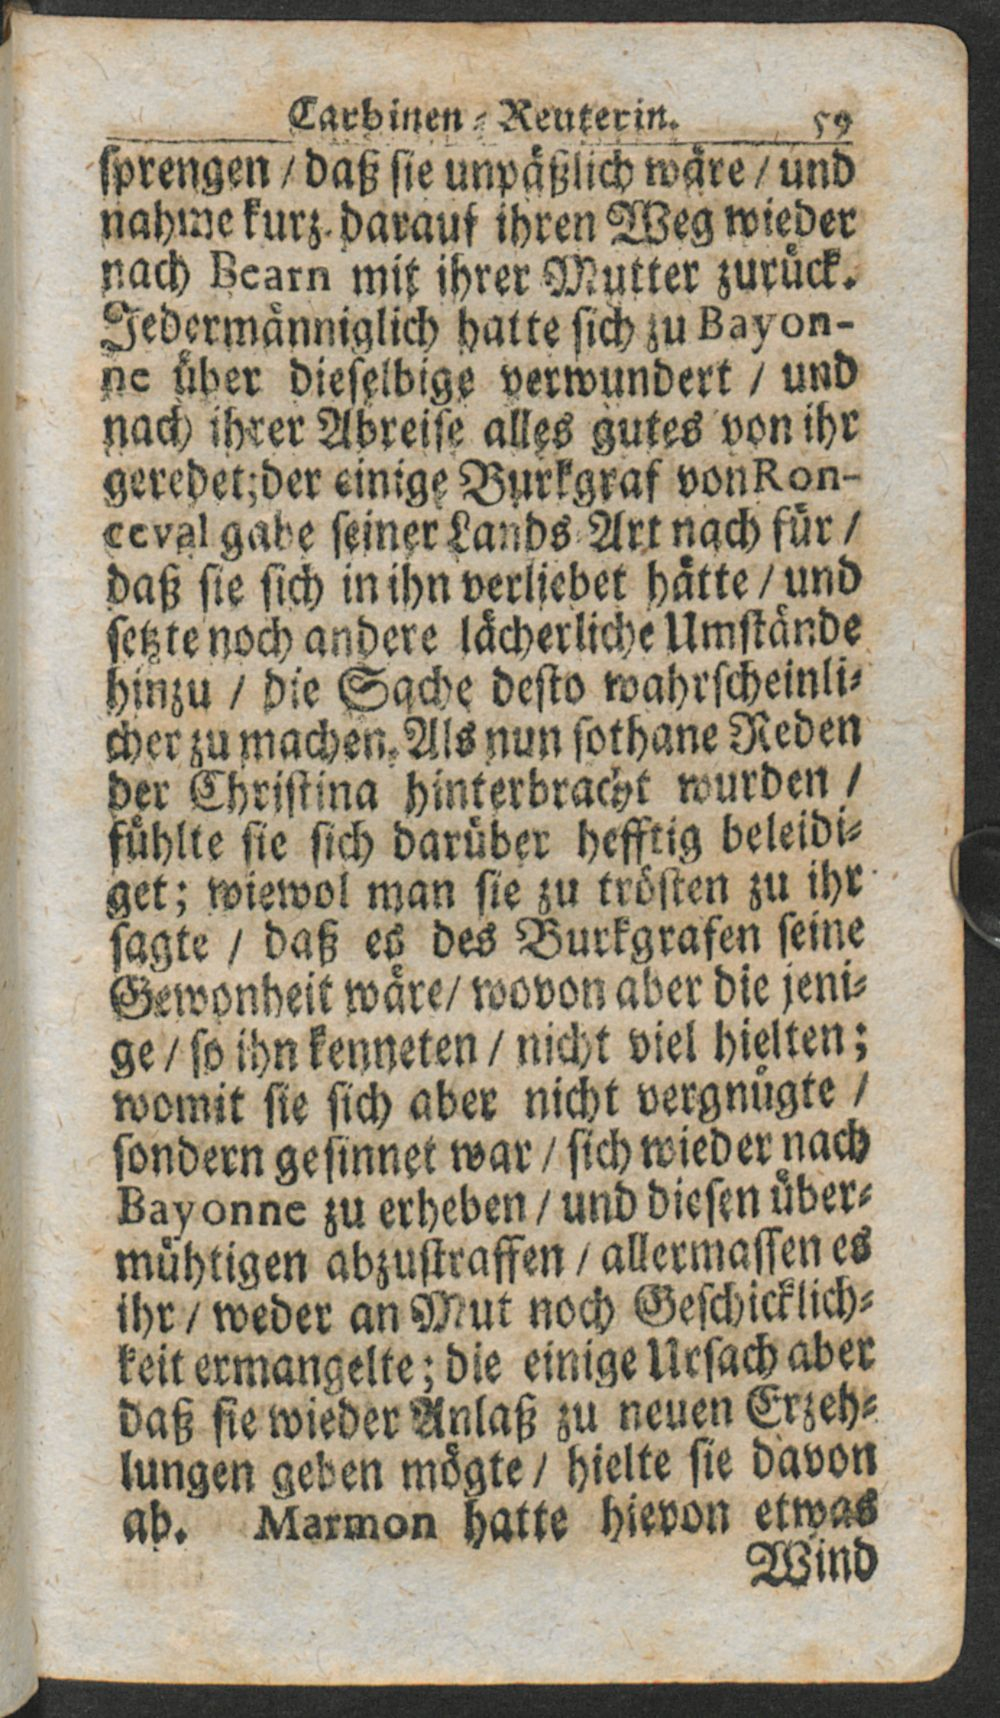 Carbinen-Reuterin. 59
sprengen / daß sie unpäßlich wäre / und
nahme kurz darauf ihren Weg wieder
nach Bearn mit ihrer Mutter zurück.
Jedermänniglich hatte sich zu Bayon-
ne über dieselbige verwundert / und
nach ihrer Abreise alles gutes von ihr
geredet; der einige Burkgraf von Ron-
ceval gabe seiner Lands-Art nach für /
daß sie sich in ihn verliebet hätte / und
setzte noch andere lächerliche Umstände
hinzu / die Sache desto wahrscheinli-
cher zu machen. Als nun sothane Reden
der Christina hinterbracht wurden /
fühlte sie sich darüber hefftig beleidi-
get; wiewol man sie zu trösten zu ihr
sagte / daß es des Burkgrafen seine
Gewonheit wäre / wovon aber die jeni-
ge / so ihn kenneten / nicht viel hielten;
womit sie sich aber nicht vergnügte /
sondern gesinnet war / sich wieder nach
Bayonne zu erheben / und diesen über-
mühtigen abzustraffen / allermassen es
ihr / weder an Mut noch Geschicklich-
keit ermangelte; die einige Ursach aber
daß sie wieder Anlaß zu neuen Erzeh-
lungen geben mögte / hielte sie davon
ab. Marmon hatte hievon etwas
Wind